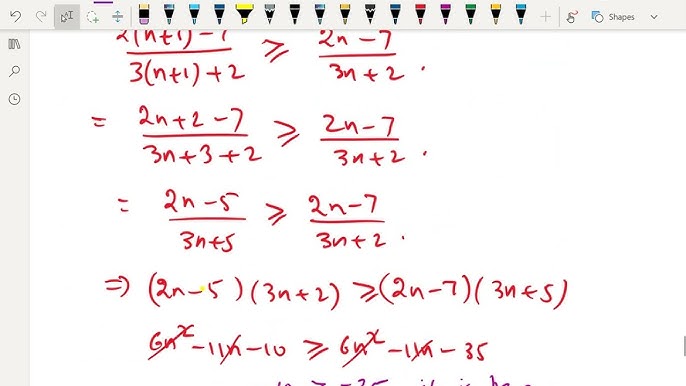 Shapes
2(n+1)-7 / 3(n+1)+2 ≥ 2n-7 / 3n+2 .
= 2n+2-7 / 3n+3+2 ≥ 2n-7 / 3n+2 .
= 2n-5 / 3n+5 ≥ 2n-7 / 3n+2 .
⇒ (2n-5)(3n+2) ≥ (2n-7)(3n+5)
6n²-11n-10 ≥ 6n²-11n-35